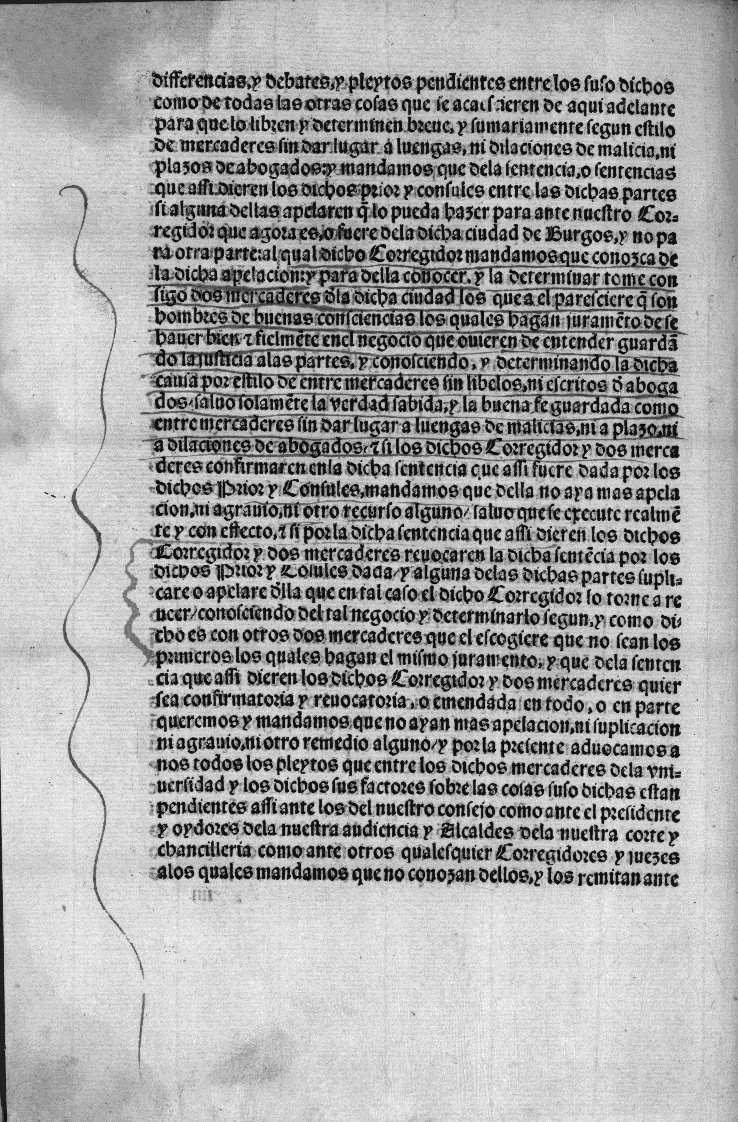 differencias, y debates, y pleytos pendientes entre los suso dichos
como de todas las otras cosas que se acaescieren de aqui adelante
para que lo libren y determinen breue, y sumariamente segun estilo
de mercaderes sin dar lugar a luengas, ni dilaciones de malicia, ni
plazos de abogados: y mandamos que dela sentencia, o sentencias
que assi dieren los dichos prior y consules entre las dichas partes
si alguna dellas apelaren q̃ lo pueda hazer para ante nuestro Cor-
regidor que agora es, o fuere dela dicha ciudad de Burgos, y no pa
ra otra parte: al qual dicho Corregidor mandamos que conozca de
la dicha apelacion: y para della conocer, y la determinar tome con
sigo dos mercaderes d̃la dicha ciudad los que a el paresciere q̃ son
hombres de buenas consciencias los quales hagan juramẽto de se
hauer bien ⁊ fielmẽte enel negocio que ouieren de entender guardã
do la justicia alas partes, y conosciendo, y determinando la dicha
causa por estilo de entre mercaderes sin libelos, ni escritos d̃ aboga
dos, saluo solamẽte la verdad sabida, y la buena fe guardada como
entre mercaderes sin dar lugar a luengas de malicias, ni a plazo, ni
a dilaciones de abogados, ⁊ si los dichos Corregidor y dos merca
deres confirmaren enla dicha sentencia que assi fuere dada por los
dichos Prior y Consules, mandamos que della no aya mas apela
cion, ni agrauio, ni otro recurso alguno/ saluo que se execute realmẽ
te y con effecto, ⁊ si por la dicha sentencia que assi dieren los dichos
Corregidor y dos mercaderes reuocaren la dicha sentẽcia por los
dichos Prior y Cõsules dada/ y alguna delas dichas partes supli-
care o apelare d̃lla que en tal caso el dicho Corregidor lo torne a re
ueer/ conosciendo del tal negocio y determinarlo segun, y como di-
cho es con otros dos mercaderes que el escogiere que no sean los
primeros los quales hagan el mismo juramento, y que dela senten
cia que assi dieren los dichos Corregidor y dos mercaderes quier
sea confirmatoria y reuocatoria, o emendada en todo, o en parte
queremos y mandamos que no ayan mas apelacion, ni suplicacion
ni agrauio, ni otro remedio alguno/ y por la presente aduocamos a
nos todos los pleytos que entre los dichos mercaderes dela vni-
uersidad y los dichos sus factores sobre las cosas suso dichas estan
pendientes assi ante los del nuestro consejo como ante el presidente
y oydores dela nuestra audiencia y Alcaldes dela nuestra corte y
chancilleria como ante otros qualesquier Corregidores y juezes
alos quales mandamos que no conozan dellos, y los remitan ante